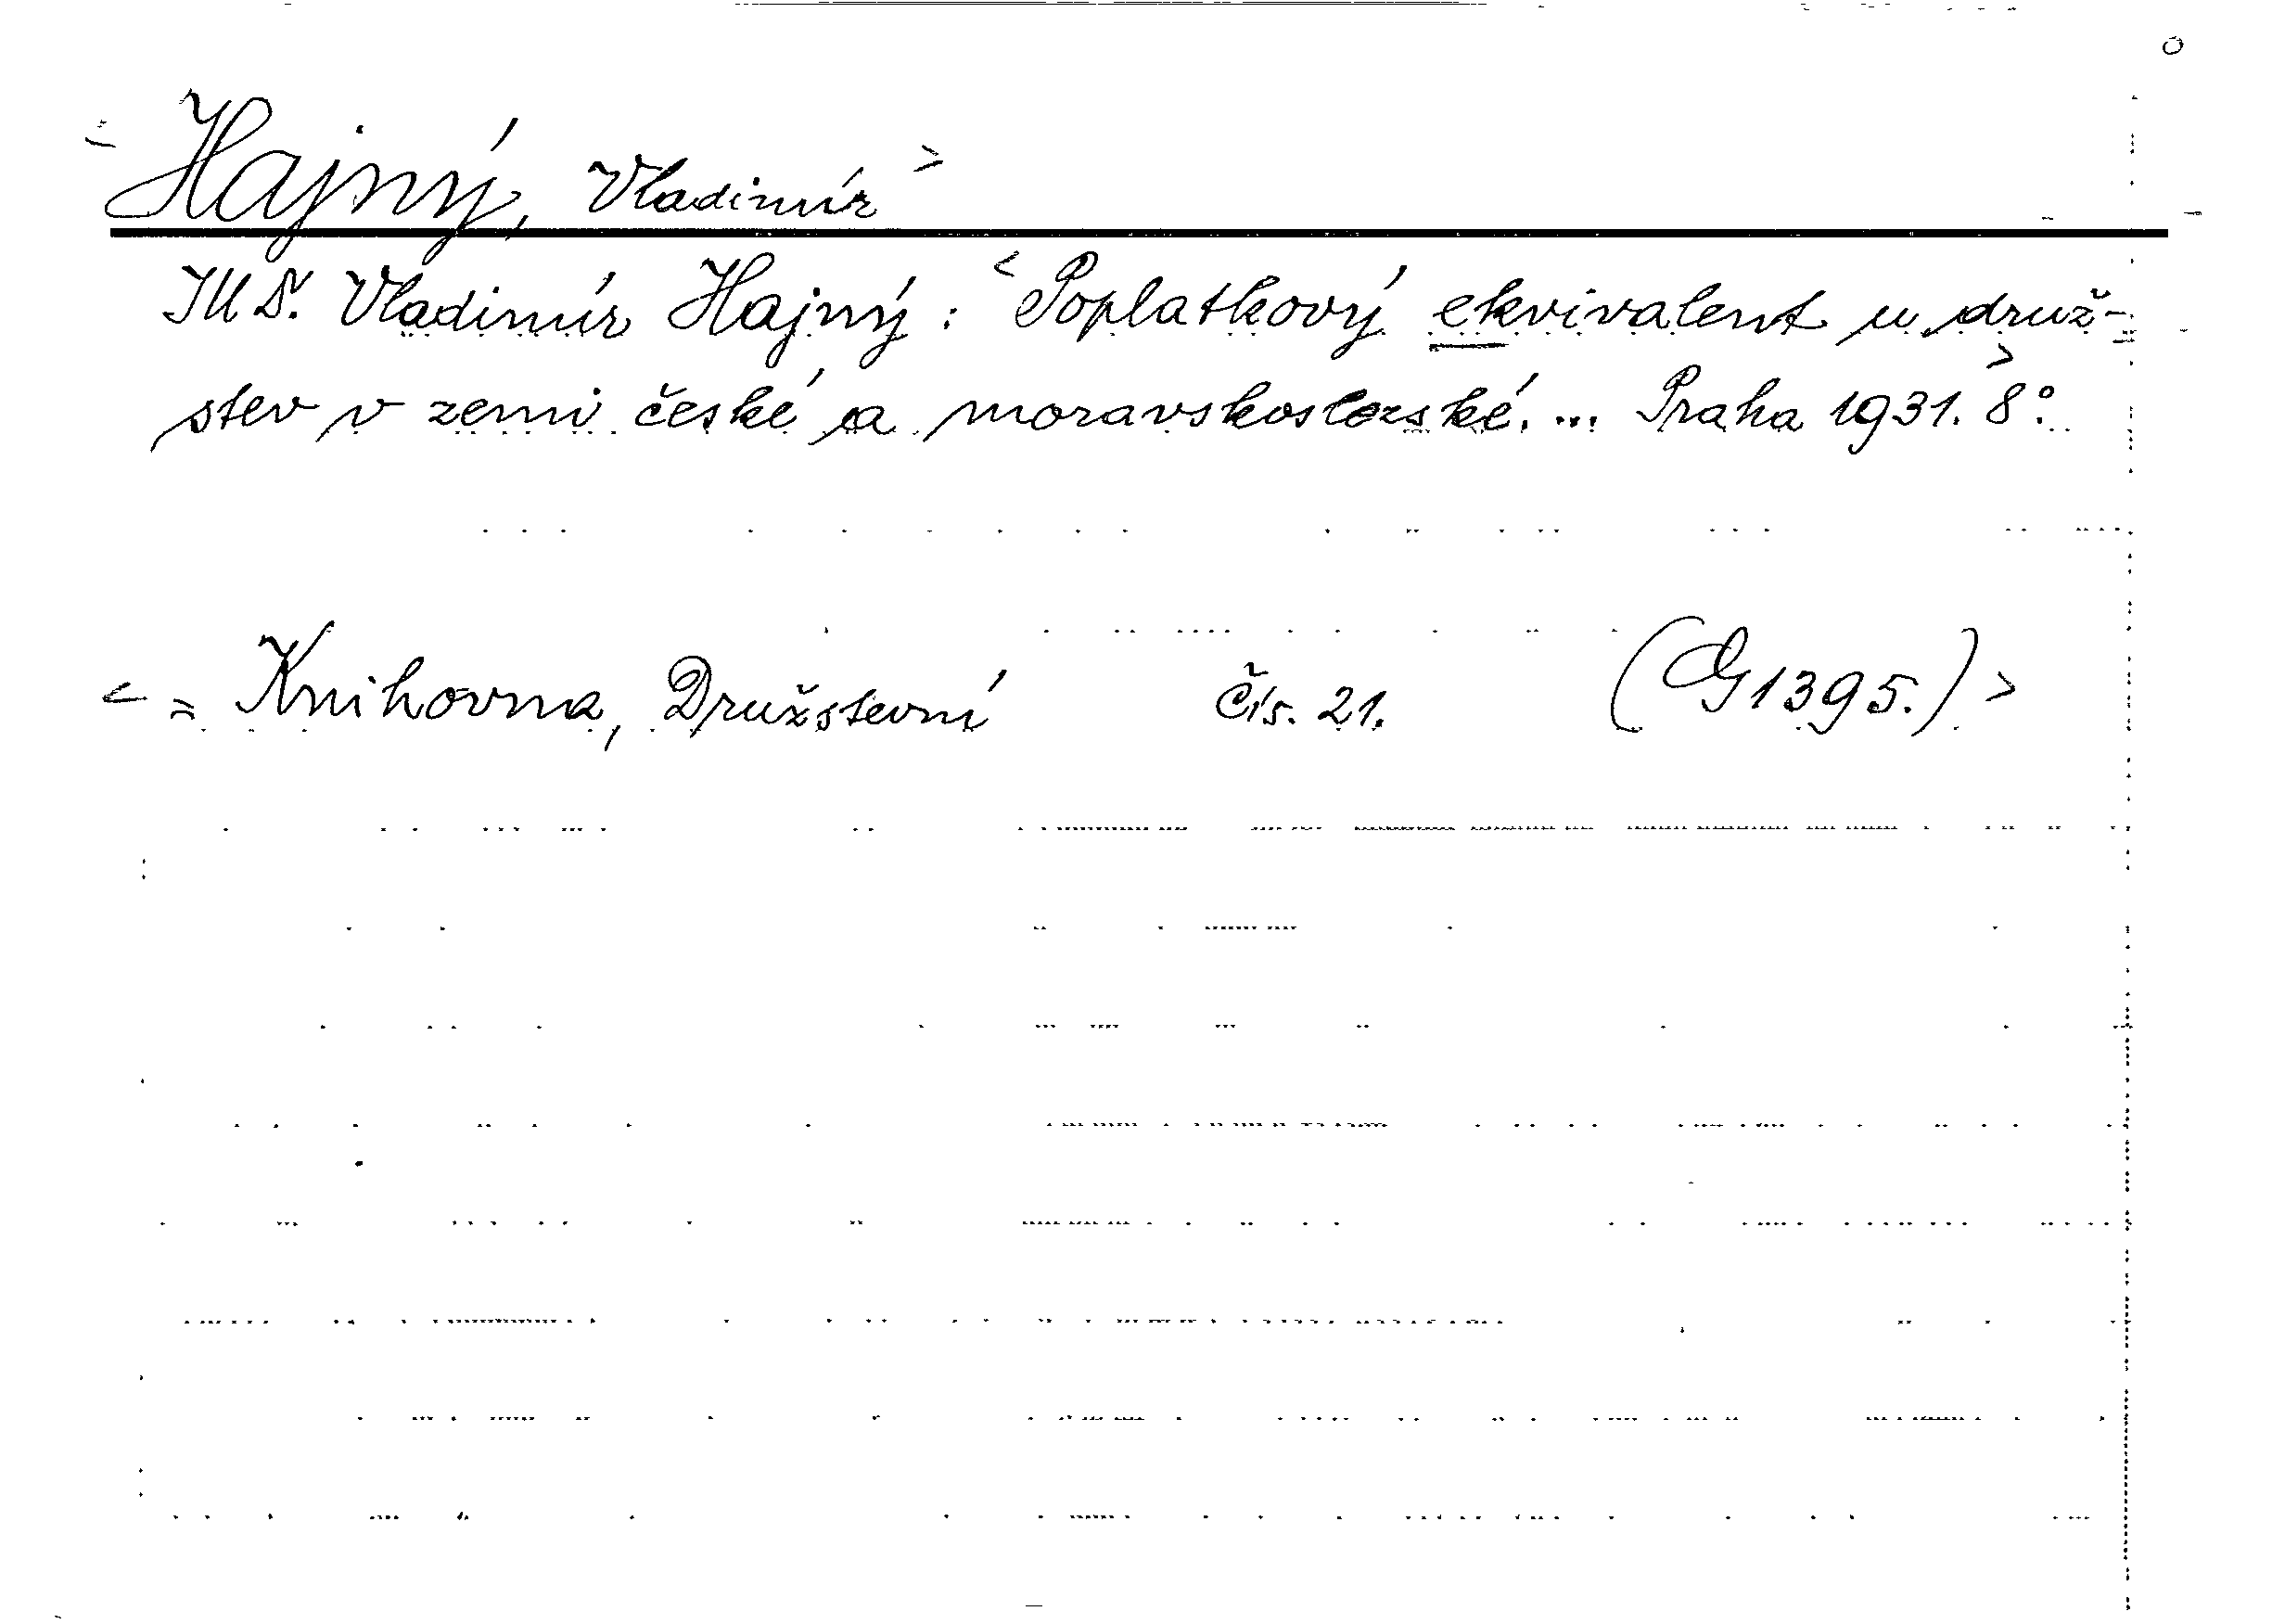 < Hajný, Vladimír >
JUDr. Vladimír Hajný: < Poplatkový ekvivalent u druž-
stev v zemi české a moravskoslezské. ... Praha 1931. 8°. >
< = Knihovna, Družstevní čís. 21. (G 1395.) >